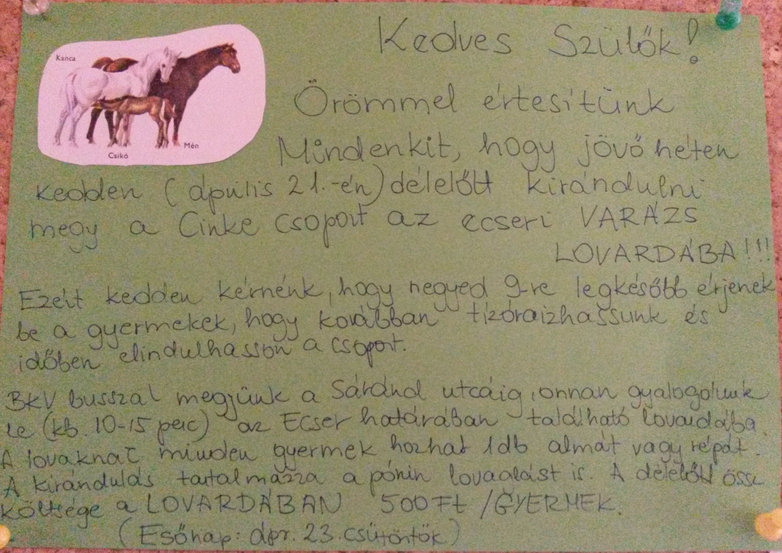 Kedves Szülők!
Kanca
Csikó
Mén
Örömmel értesítünk
Mindenkit, hogy jövő héten
kedden (április 21.-én) délelőtt kirándulni
megy a Cinke csoport az ecseri VARÁZS
LOVARDÁBA!!!
Ezért kedden kérnénk, hogy negyed 9-re legkésőbb érjenek
be a gyermekek, hogy korábban tízóraizhassunk és
időben elindulhasson a csoport.
BKV busszal megyünk a utcáig, onnan gyalogolunk
le (kb. 10-15 perc) az Ecser határában található lovardába.
A lovaknak minden gyermek hozhat 1db almát vagy répát.
A kirándulás tartalmazza a pónin lovaglást is. A délelőtt össz
költsége a LOVARDÁBAN 500 Ft /GYERMEK.
(Esőnap: ápr. 23. csütörtök)